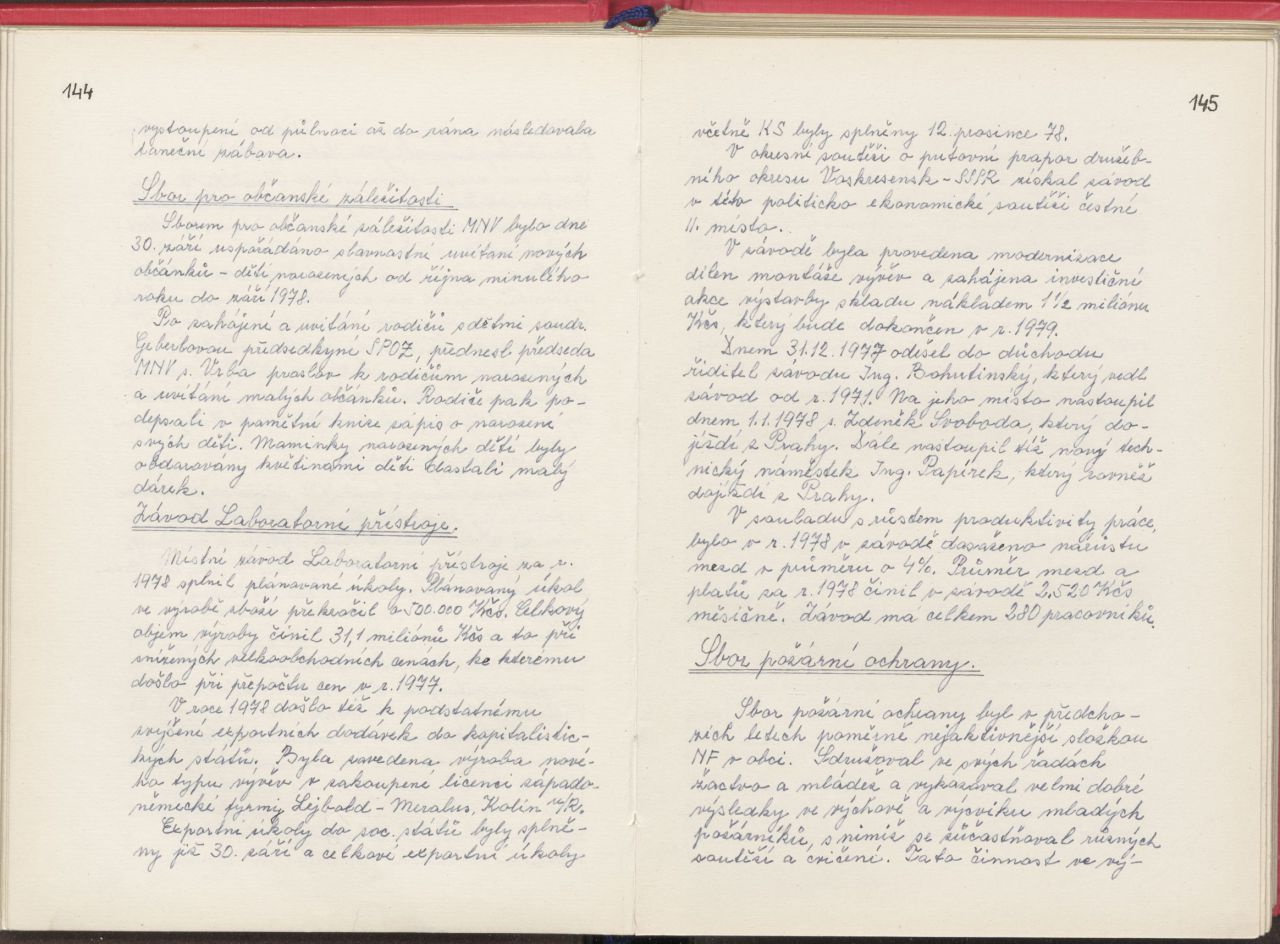 144
vystoupení od půlnoci až do rána následovala
taneční zábava.
Sbor pro občanské záležitosti.
Sborem pro občanské záležitosti MNV bylo dne
30. září uspořádáno slavnostní uvítání nových
občánků - dětí narozených od října minulého
roku do září 1978.
Po zahájení a uvítání rodičů s dětmi soudr.
Geberlovou předsedkyní SPOZ, přednesl předseda
MNV s. Vrba proslov k rodičům narozených
a uvítání malých občánků. Rodiče pak po-
depsali v pamětní knize zápis o narození
svých dětí. Maminky narozených dětí byly
obdarovány květinami děti dostali malý
dárek.
Závod Laboratorní přístroje.
Místní závod Laboratorní přístroje za r.
1978 splnil plánované úkoly. Plánovaný úkol
ve výrobě zboží překročil o 500.000 Kčs. Celkový
objem výroby činil 31,1 miliónů Kčs a to při
snížených velkoobchodních cenách, ke kterému
došlo při přepočtu cen v r. 1977.
V roce 1978 došlo též k podstatnému
zvýšení exportních dodávek do kapitalistic-
kých států. Byla zavedena výroba nové-
ho typu vývěv v zakoupené licenci západo-
německé fyrmy Lejbold - Meralus, Kolín n/R.
Exportní úkoly do soc. států byly splně-
ny již 30. září a celkové exportní úkoly
145
včetně KS byly splněny 12. prosince 78.
V okresní soutěži o putovní prapor družeb-
ního okresu Voskresensk - SSSR získal závod
v této politicko ekonomické soutěži čestné
II. místo.
V závodě byla provedena modernizace
dílen montáže vývěv a zahájena investiční
akce výstavby skladu nákladem 1 1/2 miliónu
Kčs, který bude dokončen v r. 1979.
Dnem 31.12.1977 odešel do důchodu
ředitel závodu Ing. Bohutinský, který vedl
závod od r. 1971. Na jeho místo nastoupil
dnem 1.1.1978 s. Zdeněk Svoboda, který do-
jíždí z Prahy. Dále nastoupil též nový tech-
nický náměstek Ing. Papírek, který rovněž
dojíždí z Prahy.
V souladu s růstem produktivity práce,
bylo v r. 1978 v závodě dosaženo nárůstu
mezd v průměru o 4%. Průměr mezd a
platů za r. 1978 činil v závodě 2.520 Kčs
měsíčně. Závod má celkem 280 pracovníků.
Sbor požární ochrany.
Sbor požární ochrany byl v předcho-
zích letech poměrně nejaktivnější složkou
NF v obci. Sdružoval ve svých řadách
žactvo a mládež a vykazoval velmi dobré
výsledky ve výchově a výcviku mladých
požárníků, s nimiž se zúčastňoval různých
soutěží a cvičení. Tato činnost ve vý-